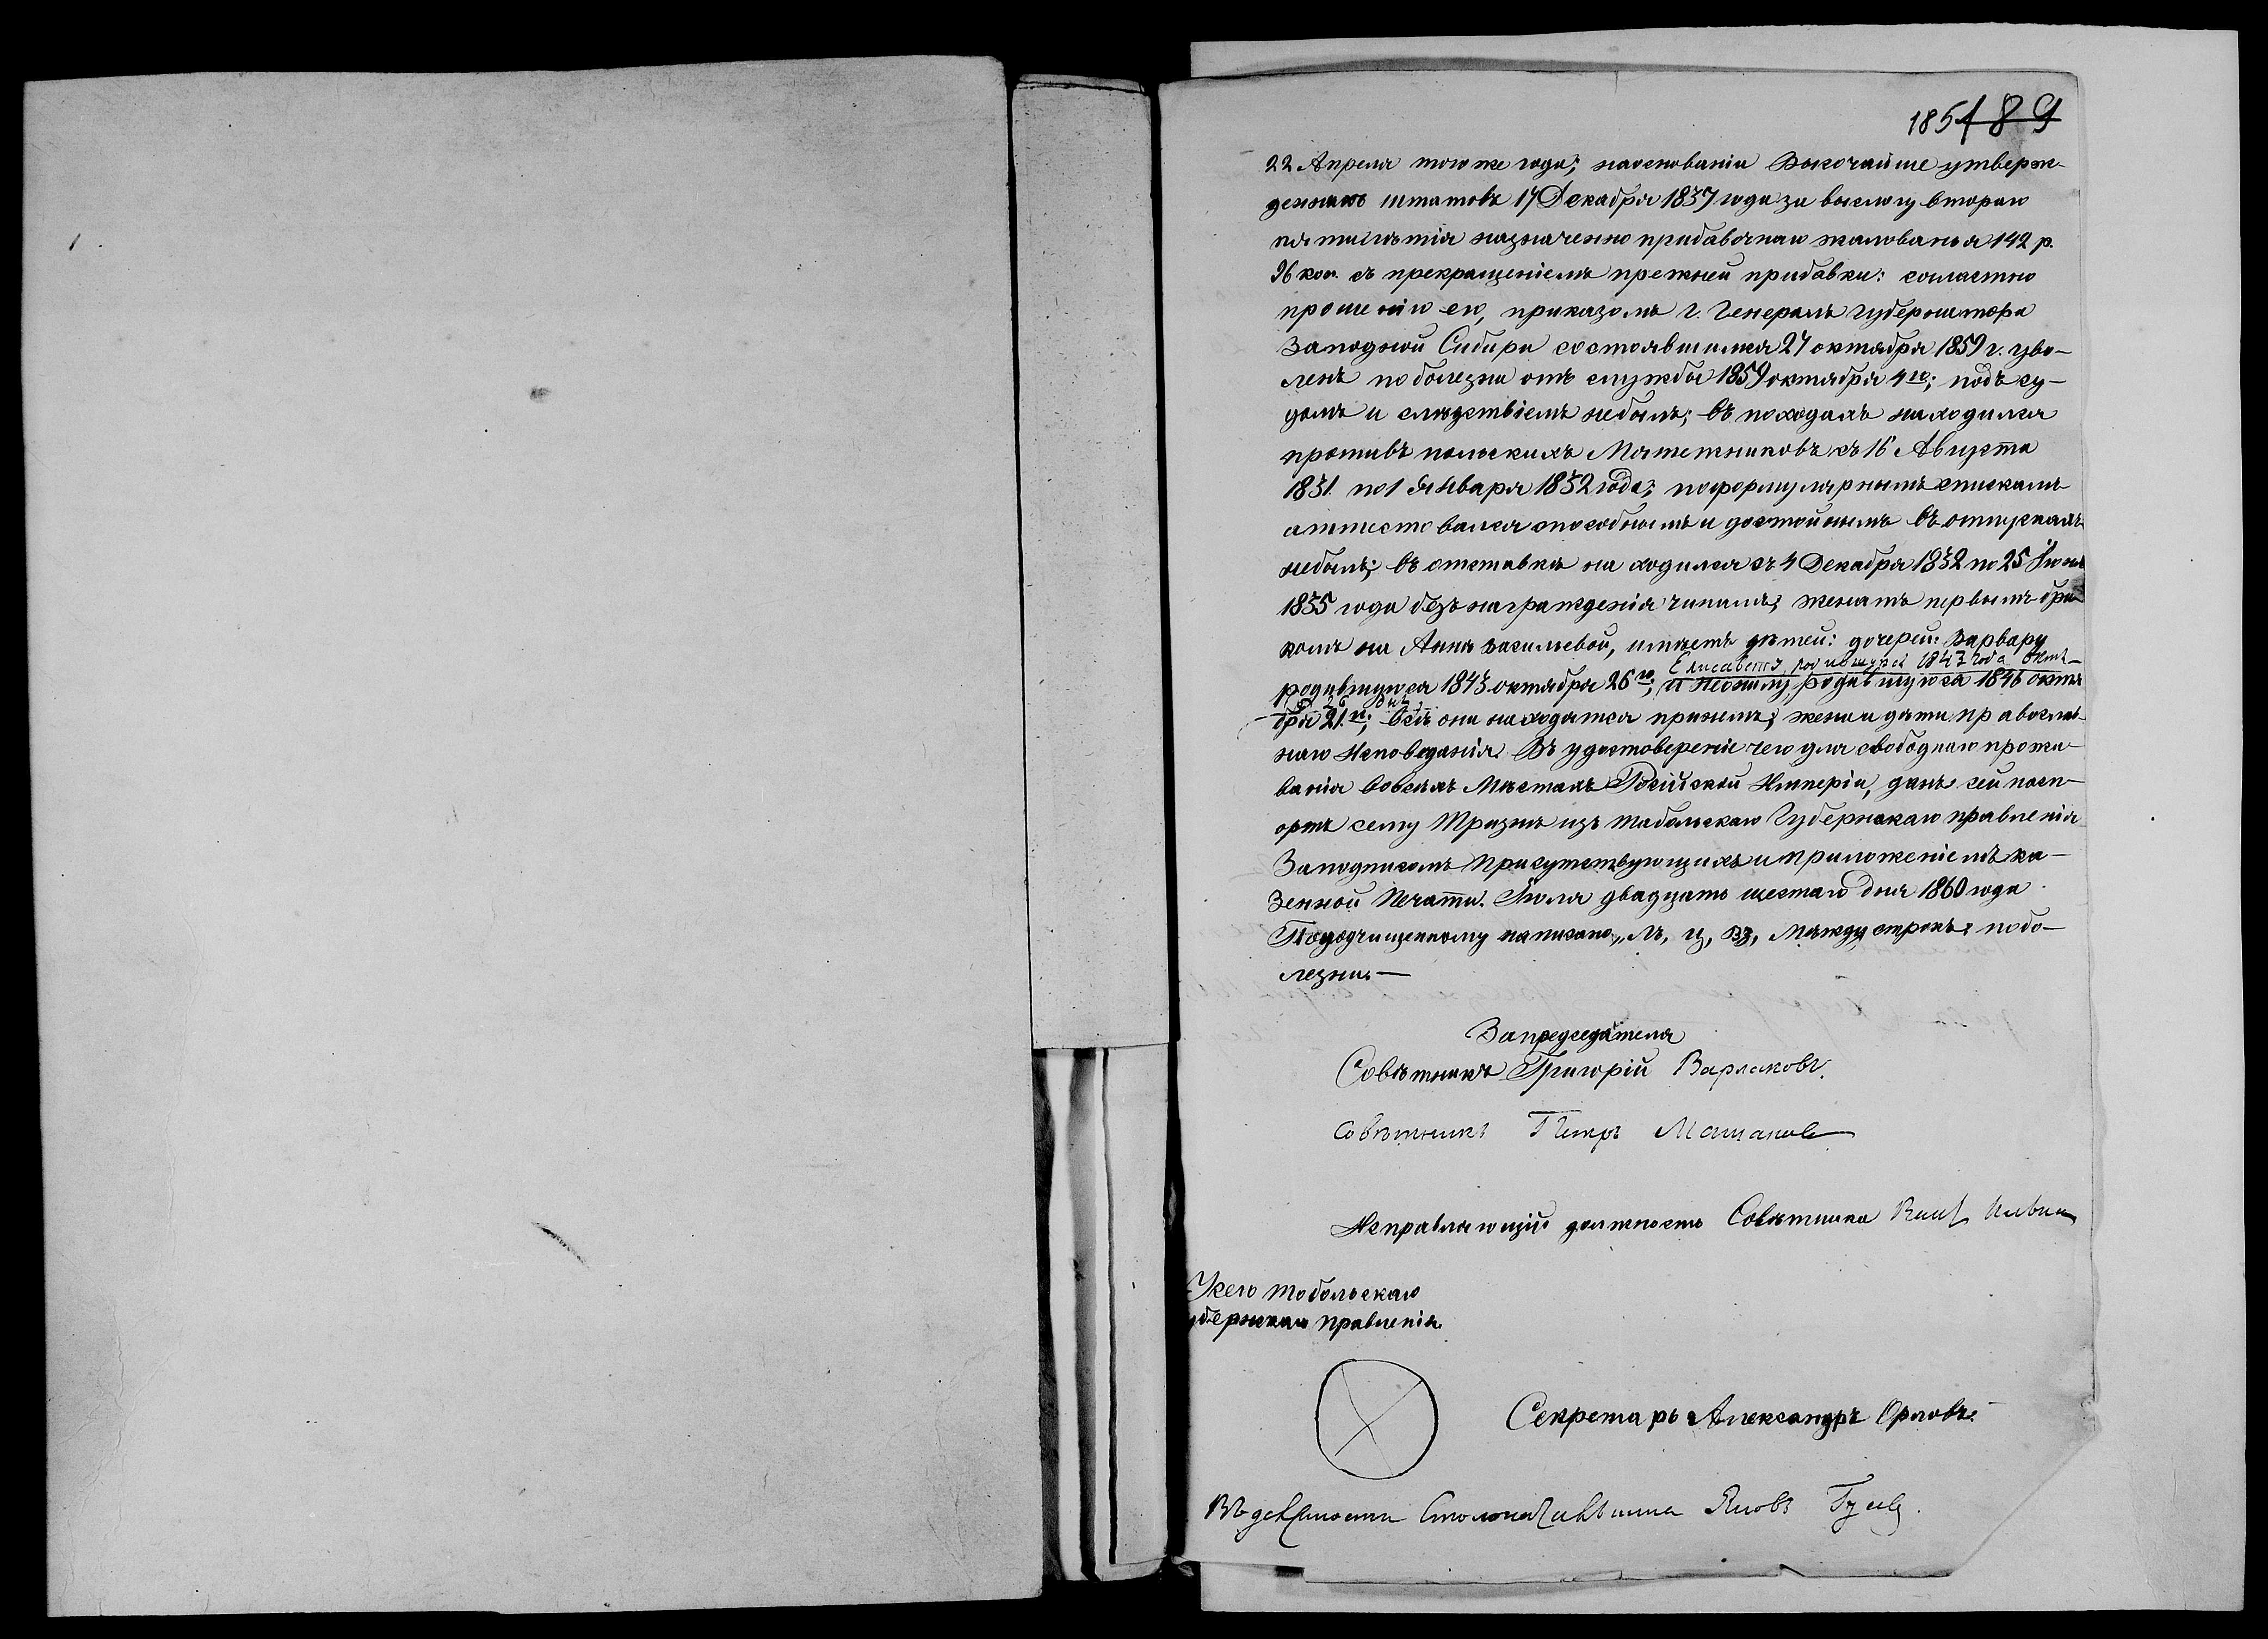 185 189
22 Апреля того же года; наосновании Высочайше утверж-
денныхъ штатовъ 17 Декабря 1837 года за выслогу втораго
пятилѣтія назначенно прибавочнаго жалованья 142 р.
96 коп. съ прекращеніемъ прежней прибавки: согластно
прошенію его, приказомъ г. Генералъ Губернатора
Западной Сибири состоявшимся 27 октября 1859 г. уво-
ленъ по болезни отъ службы 1859 октября 4го; подъ су-
домъ и слѣдствіемъ небылъ; въ походахъ находился
противъ польскихъ Мятежниковъ съ 16 Августа
1831 по 1 Января 1832 года; поформулярнымъ спискамъ
аттестовался способнымъ и достойнымъ въ отпускахъ
небылъ; въ отставкѣ находился съ 4 Декабря 1832 по 25 Іюня
1835 года безъ награжденія чиномъ; женатъ первымъ бра-
комъ на Аннѣ Васильевой, имѣетъ дѣтей: дочерей: Варвару
Елисавету родившуюся 1847 года Октя-
родившуюся 1843 октября 26го; и родившуюся 1846 октя
бря 21го; всѣ они находятся принемъ; жена и дѣти православ-
наго Исповеданія. Въ удостовереніе чего для свободнаго прожи-
ванія вовсѣхъ Мѣстахъ Російской Имперіи, данъ сей посп-
ортъ сему Тризнѣ изъ Тобольскаго Губернскаго правленія
Заподписомъ Присутствующихъ и приложеніемъ ка-
зенной Печати. Іюля двадцать шестаго дня 1860 года.
Поподчищенному написано „ лъ, ц, вз, Между строкъ: побо-
лезни. —
Запредседателя
Совѣтникъ Григорій Варлаковъ.
Совѣтникъ Петръ
Исправляющій должность Совѣтника
У сего Тобольскаго
убернскаго правленія
Секретарь Александръ Орловъ.
Въ должности Столоначальника Гусев.